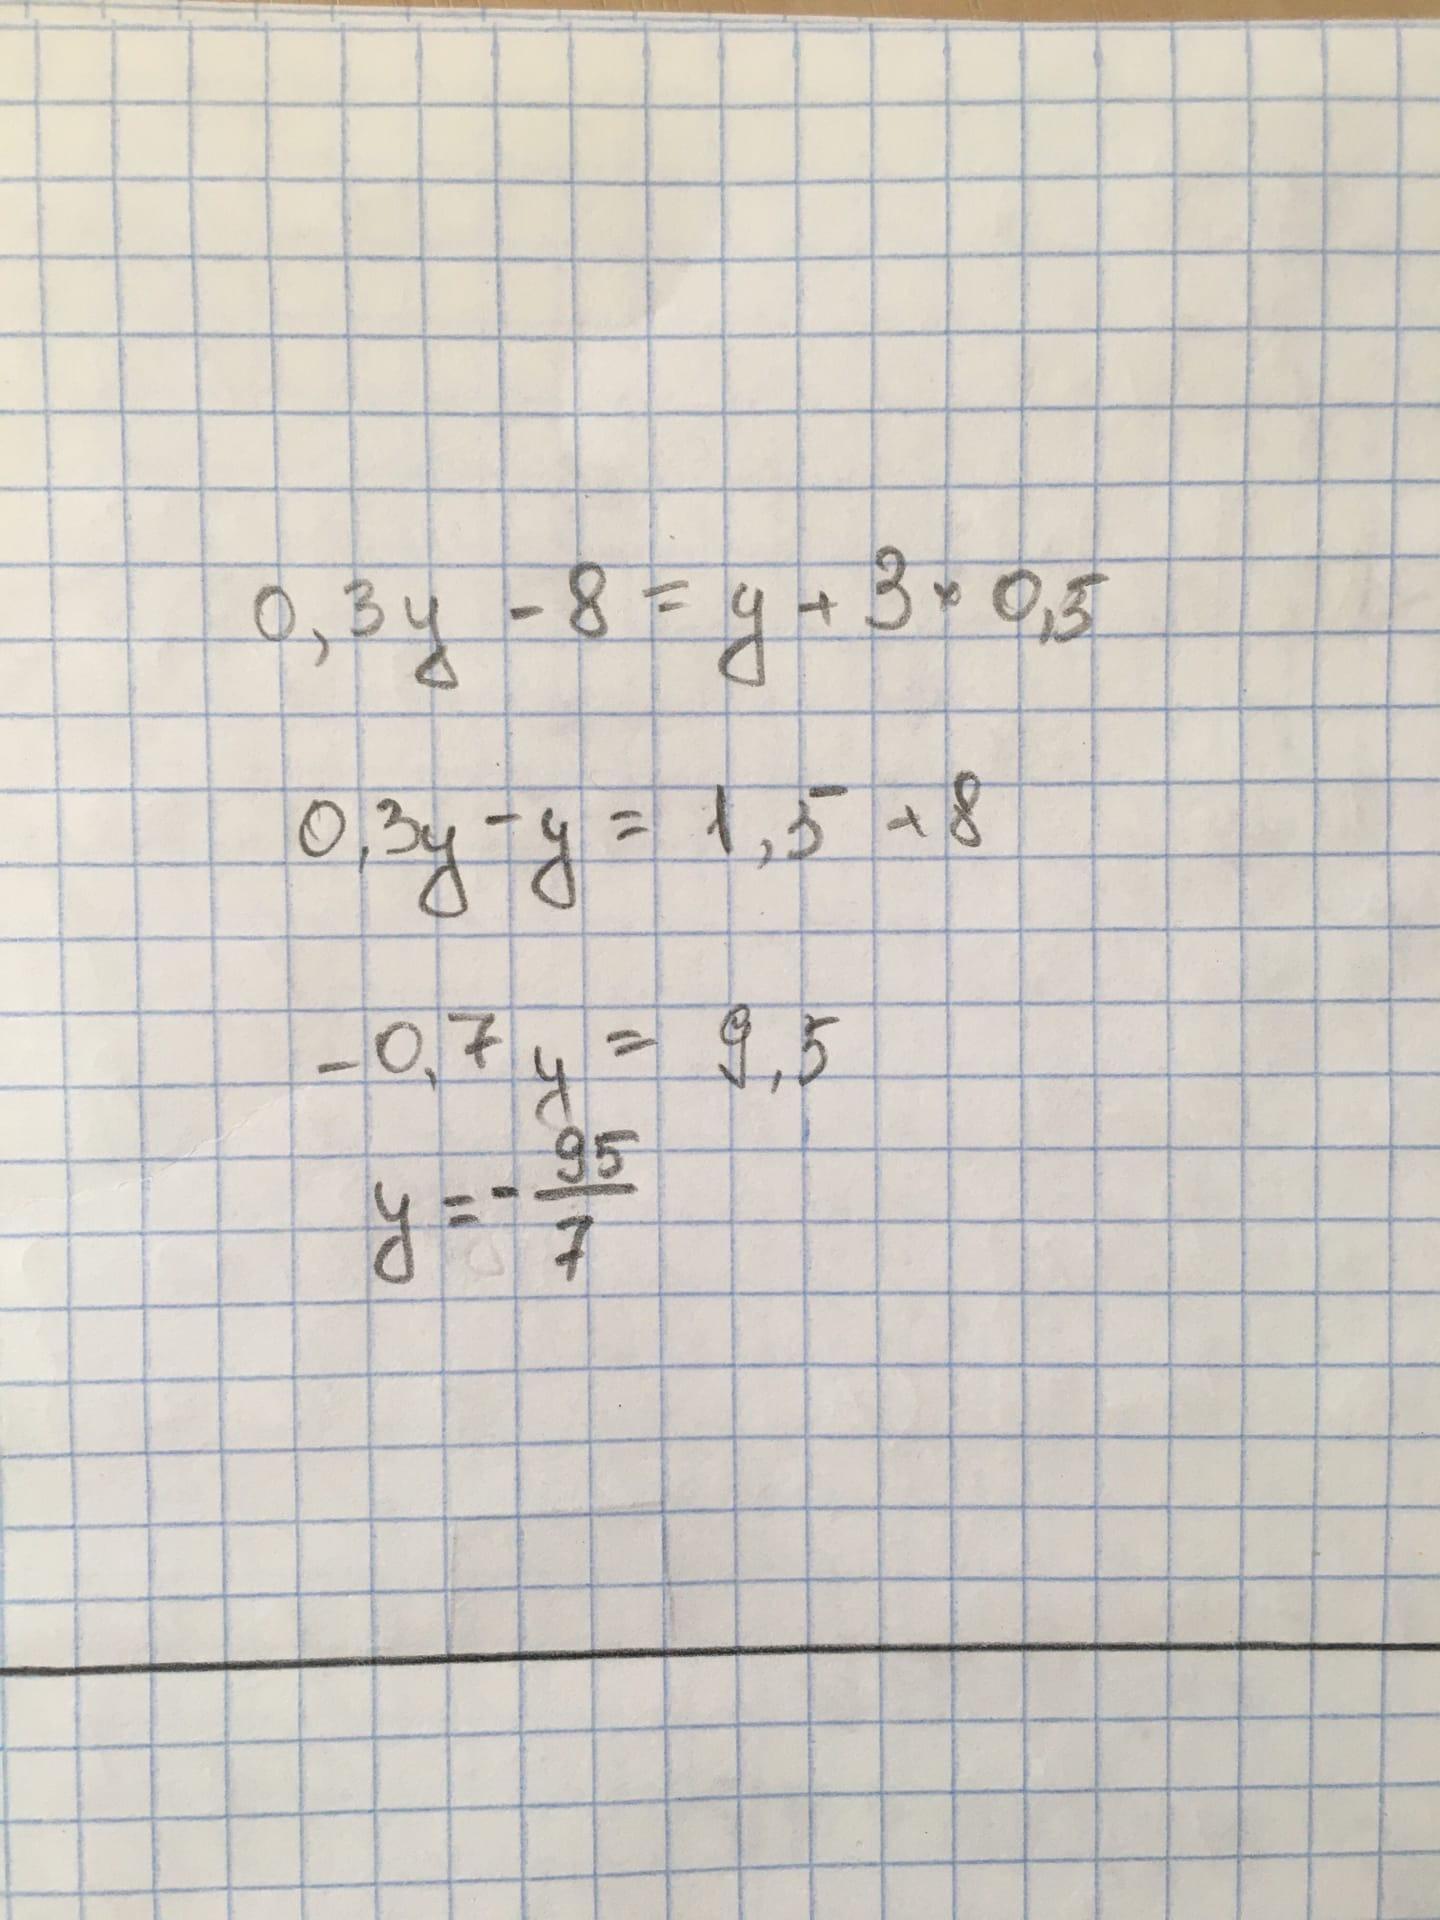 0,3y - 8 = y + 3 × 0,5
0,3y - y = 1,5 + 8
-0,7y = 9,5
y = - 95/7